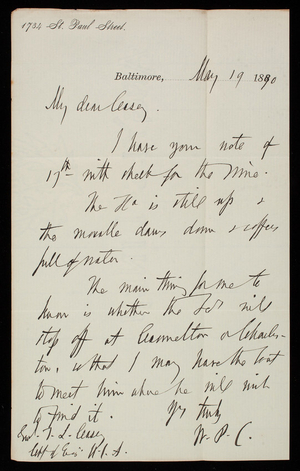 1724 St. Paul Street.
Baltimore, May 19 1890
My dear Casey.
I have your note of
17th with check for the wine.
The Ho is still up &
the movable dams down & coffers
full of water.
The main thing for me to
know is whether the will
stop off at Cannelton or Charles-
ton, so that I may have the boat
to meet him where he will wish
to find it. Yrs truly
W. P. C.
Genl. T. L. Casey
Chf of Eng. U.S.A.